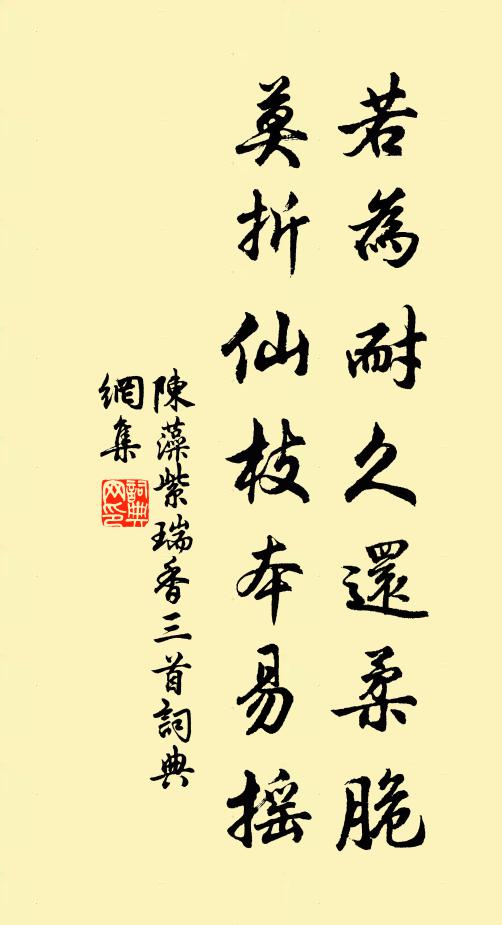 若為耐久還柔脆
莫折仙枝本易摇
陳藻紫瑞香三首詞典
網集
詞典
网印